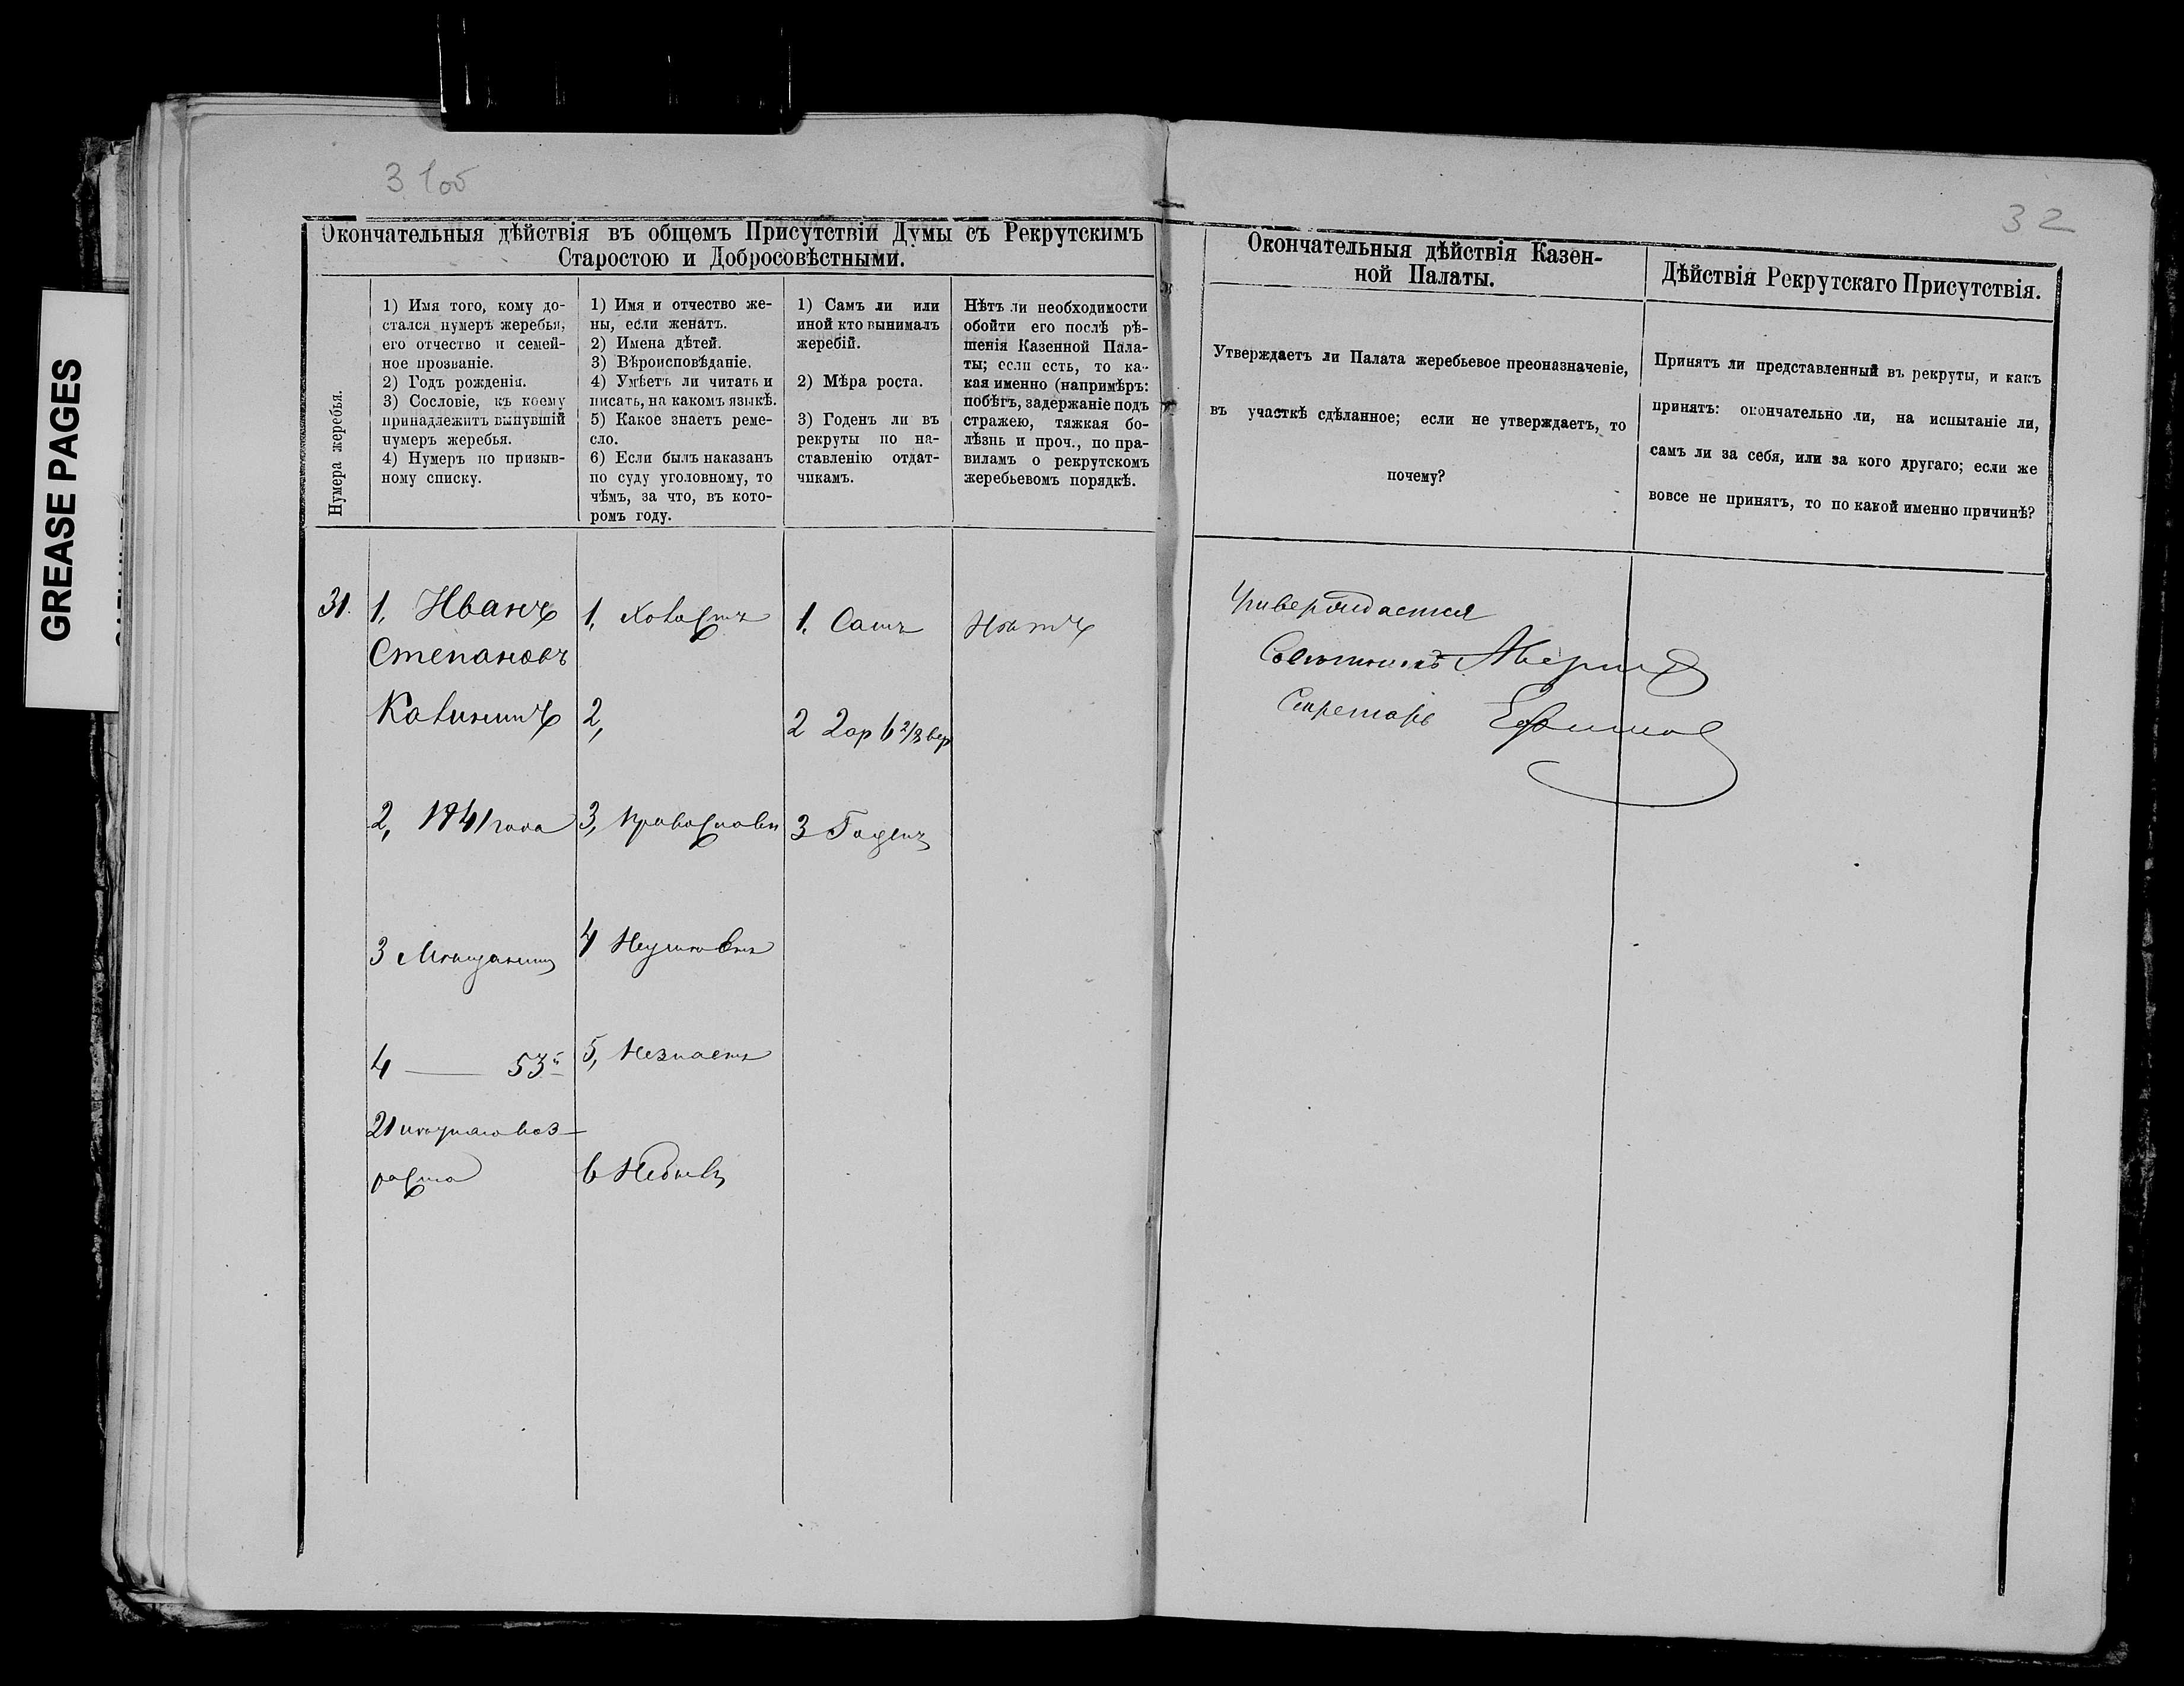 GREASE PAGES
3 1об
32
Окончательныя дѣйствія въ общемъ Присутствіи Думы съ Рекрутскимъ
Старостою и Добросовѣстными.
Нумера жеребья.
1) Имя того, кому до-
стался нумеръ жеребья,
его отчество и семей-
ное прозваніе.
2) Годъ рожденія.
3) Сословіе, къ коему
принадлежитъ вынувшій
нумеръ жеребья.
4) Нумеръ по призыв-
ному списку.
1) Имя и отчество же-
ны, если женатъ.
2) Имена дѣтей.
3) Вѣроисповѣданіе.
4) Умѣетъ ли читать и
писать, на какомъ языкѣ.
5) Какое знаетъ реме-
сло.
6) Если былъ наказанъ
по суду уголовному, то
чѣмъ, за что, въ кото-
ромъ году.
1) Самъ ли или
иной кто вынималъ
жеребій.
2) Мѣра роста.
3) Годенъ ли въ
рекруты по на-
ставленію отдат-
чикамъ.
Нѣтъ ли необходимости
обойти его послѣ рѣ-
шенія Казенной Пала-
ты; если есть, то ка-
кая именно (напримѣръ:
побѣгъ, задержаніе подъ
стражею, тяжкая бо-
лѣзнь и проч., по пра-
виламъ о рекрутскомъ
жеребьевомъ порядкѣ.
Окончательныя дѣйствія Казен-
ной Палаты.
Утверждаетъ ли Палата жеребьевое преоназначеніе,
въ участкѣ сдѣланное; если не утверждаетъ, то
почему?
Дѣйствія Рекрутскаго Присутствія.
Принятъ ли представленный въ рекруты, и какъ
принятъ: окончательно ли, на испытаніе ли,
самъ ли за себя, или за кого другаго; если же
вовсе не принятъ, то по какой именно причинѣ?
31.
1, Иванъ
Степановъ
2, 1841 года
3 Мѣщанинъ
4 — 53
21 лѣтняго воз-
раста
1, Холостъ
2,
3, Православн
4 Неумѣетъ
5, Незнаетъ
6 Небылъ
1. Самъ
2 2 ар 6 2/8 вер
3 Годенъ
Нѣтъ
Утверждается
Совѣтникъ
Секретарь Ефимов